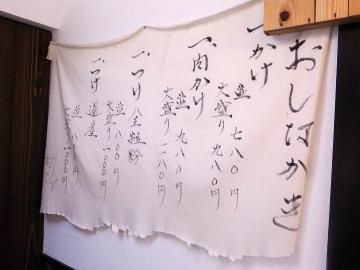 おしながき
一、かけ
並 七八〇円
大盛り 九八〇円
一、肉かけ
並 九八〇円
大盛り 一一八〇円
一、つけ 全粒粉
並 八〇〇円
大盛り 一〇〇〇円
一、つけ
道産
並 八〇〇円
大盛り 一〇〇〇円